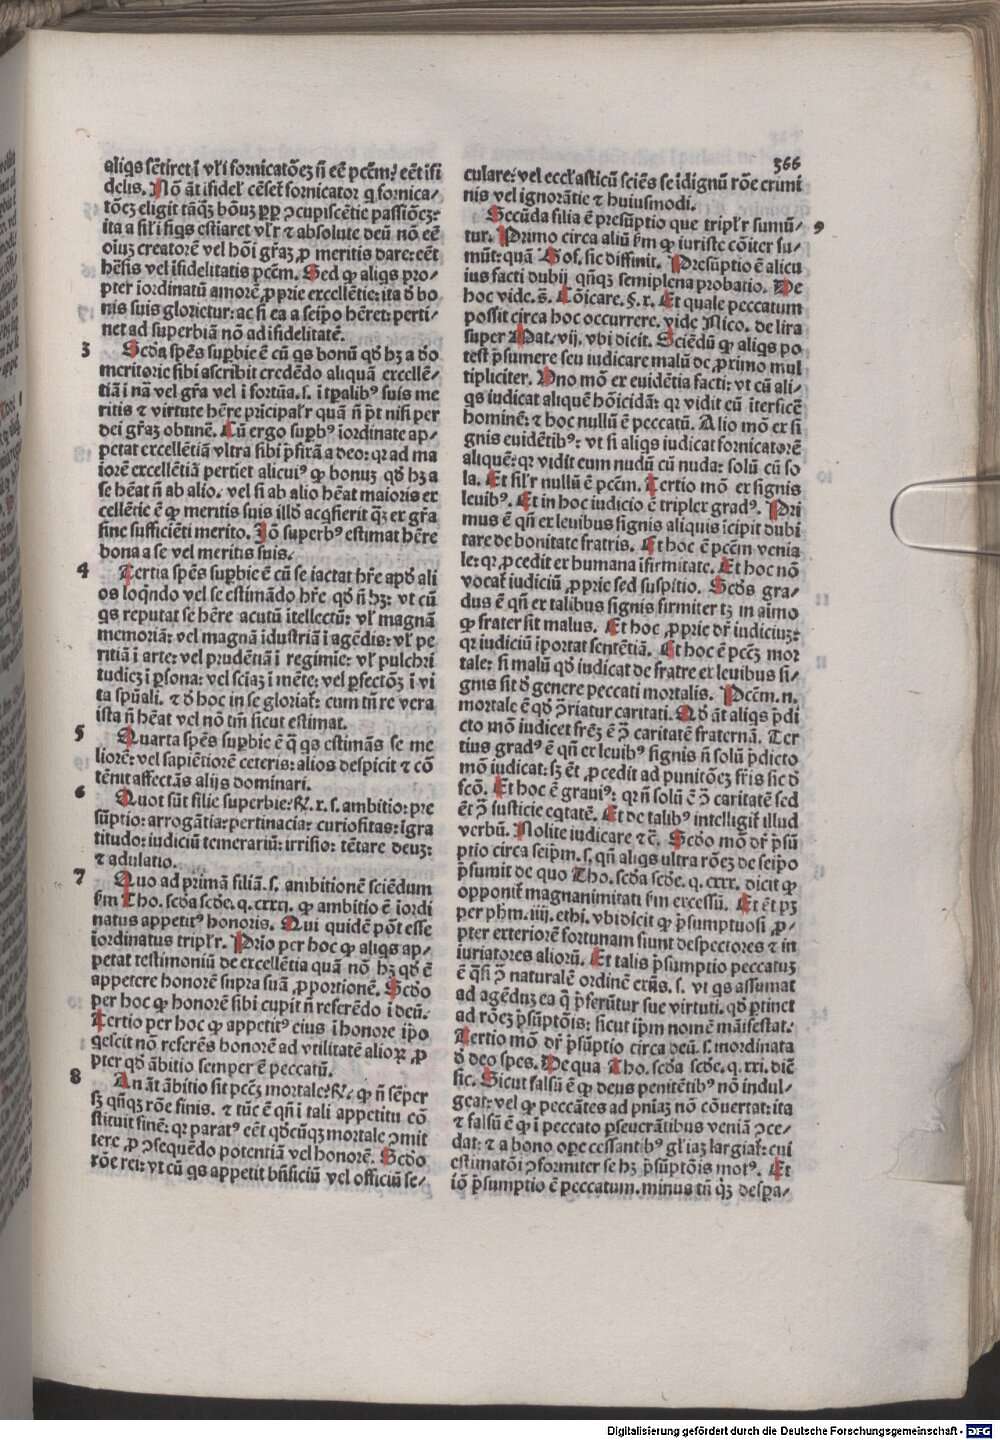 366
aliqs sẽtiret ĩ vl'i fornicatõeȝ ñ eẽ pcc̃m: eẽt ĩfi
delis. Nõ ãt ĩfidel' cẽset̃ fornicator q fornica⸗
tõeȝ eligit tãq̃ȝ bõuȝ ꝓp ɔcupiscẽtie passiõeȝ:
ita a sil'i si qs estiaret vl'r ⁊ absolute deũ nõ eẽ
oĩuȝ creatorẽ vel hõi gr̃aȝ ꝓ meritis dare: eẽt
hẽsis vel ĩfidelitatis pcc̃m. Sed ꝙ aliqs pro⸗
pter ĩordinatũ amorẽ ꝓprie excellẽtie: ita ð bo
nis suis glorietur: ac si ea a seipo hẽret: perti⸗
net ad superbiã nõ ad ĩfidelitatẽ.
3 Scða spẽs supbie ẽ cũ qs bonũ qð hȝ a ðo
meritorie sibi ascribit credẽdo aliquã excellẽ⸗
tiã ĩ nã vel gr̃a vel ĩ fortũa. s. ĩ tpalibꝰ suis me
ritis ⁊ virtute hẽre pricipal'r quã ñ p̃t nisi per
dei gr̃aȝ obtinẽ. Cũ ergo supbꝰ ĩordinate ap⸗
petat excellẽtiã vltra sibi p̃fixã a deo: qr ad ma
iorẽ excellẽtiã pertiet alicuiꝰ ꝙ bonuȝ qð hȝ a
se hẽat ñ ab alio. vel si ab alio hẽat maioris ex
cellẽtie ẽ ꝙ meritis suis illð acqsierit q̃ȝ ex gr̃a
sine sufficiẽti merito. Iõ superbꝰ estimat hẽre
bona a se vel meritis suis.
4 Tertia spẽs supbie ẽ cũ se iactat hr̃e apð ali
os loqndo vel se estimãdo hr̃e qð ñ hȝ: vt cũ
qs reputat se hẽre acutũ ĩtellectũ: vl' magnã
memoriã: vel magnã ĩdustriã ĩ agẽdis: vl' pe
ritiã ĩ arte: vel prudẽtiã ĩ regimie: vl' pulchri
tudieȝ ĩ psona: vel sciaȝ ĩ mẽte: vel pfectõeȝ ĩ vi
ta spũali. ⁊ ð hoc in se gloriat̃: cum tñ re vera
ista ñ hẽat vel nõ tm̃ sicut estimat.
5 Quarta spẽs supbie ẽ q̃ qs estimãs se me
liorẽ: vel sapiẽtiorẽ ceteris: alios despicit ⁊ cõ
tẽnit affectãs alijs dominari.
6 Quot sũt filie superbie: ℟. x. s. ambitio: pre
sũptio: arrogãtia: pertinacia: curiositas: ĩgra
titudo: iudiciũ temerariũ: irrisio: tẽtare deuȝ:
⁊ adulatio.
7 Quo ad primã filiã. s. ambitionẽ sciẽdum
ẜm Tho. scða scðe. q. cxxxj. ꝙ ambitio ẽ ĩordi
natus appetitꝰ honoris. Qui quidẽ põt esse
ĩordinatus tripl'r. Prio per hoc ꝙ aliqs ap⸗
petat testimoniũ de excellẽtia quã nõ hȝ qð ẽ
appetere honorẽ supra suã ꝓportionẽ. Scðo
per hoc ꝙ honorẽ sibi cupit ñ referẽdo ĩ deũ.
Tertio per hoc ꝙ appetitꝰ eius ĩ honore ip̃o
qescit nõ referẽs honorẽ ad vtilitatẽ alioꝝ ꝓ
pter qð ãbitio semper ẽ peccatũ.
8 An ãt ãbitio sit pcc̃ȝ mortale: ℟. ꝙ ñ sẽper
sȝ qñqȝ rõe finis. ⁊ tũc ẽ qñ ĩ tali appetitu cõ
stituit finẽ: qr paratꝰ eẽt qðcũqȝ mortale ɔmit
tere ꝓ ɔsequẽdo potentiã vel honorẽ. Scðo
rõe rei: vt cũ qs appetit bñficiũ vel officiũ se⸗
culare: vel eccl'asticũ sciẽs se ĩdignũ rõe crimi
nis vel ignorãtie ⁊ huiusmodi.
9 Secũda filia ẽ presũptio que tripl'r sumũ⸗
tur. Primo circa aliũ ẜm ꝙ iuriste cõiter su⸗
mũt: quã Gof. sic diffinit. Presũptio ẽ alicu
ius facti dubij qñqȝ semiplena probatio. De
hoc vide. s̃. Cõicare. §. x. Et quale peccatum
possit circa hoc occurrere. vide Nico. de lira
super Mat. vij. vbi dicit. Sciẽdũ ꝙ aliqs po
test p̃sumere seu iudicare malũ de ꝓximo mul
tipliciter. Uno mõ ex euidẽtia facti: vt cũ ali⸗
qs iudicat aliquẽ hõicidã: qr vidit eũ ĩtersicẽ
hominẽ: ⁊ hoc nullũ ẽ peccatũ. Alio mõ ex si
gnis euidẽtibꝰ: vt si aliqs iudicat fornicatorẽ
aliquẽ: qr vidit eum nudũ cũ nuda: solũ cũ so
la. Et sil'r nullũ ẽ pcc̃m. Tertio mõ ex signis
leuibꝰ. Et in hoc iudicio ẽ triplex gradꝰ. Pri
mus ẽ qñ ex leuibus signis aliquis ĩcipit dubi
tare de bonitate fratris. Et hoc ẽ pcc̃m venia
le: qr ꝓcedit ex humana ĩfirmitate. Et hoc nõ
vocat̃ iudiciũ ꝓprie sed suspitio. Scðs gra⸗
dus ẽ qñ ex talibus signis firmiter tȝ in aĩmo
ꝙ frater sit malus. Et hoc ꝓprie dr̃ iudiciuȝ:
qr iudiciũ ĩportat sentẽtiã. Et hoc ẽ pcc̃ȝ mor
tale: si malũ qð iudicat de fratre ex leuibus si⸗
gnis sit ð genere peccati mortalis. Pcc̃m. n.
mortale ẽ qð ɔ̃riatur caritati. Qð ãt aliqs p̃di
cto mõ iudicet frẽȝ ẽ ɔ̃ caritatẽ fraternã. Ter
tius gradꝰ ẽ qñ ex leuibꝰ signis ñ solũ p̃dicto
mõ iudicat: sȝ ẽt ꝓcedit ad punitõeȝ fr̃is sic ð
fcõ. Et hoc ẽ grauiꝰ: qr ñ solũ ẽ ɔ̃ caritatẽ sed
ẽt ɔ̃ iusticie eq̃tatẽ. Et de talibꝰ intelligit̃ illud
verbũ. Nolite iudicare ⁊ cẽ. Scðo mõ dr̃ p̃sũ
ptio circa seip̃m. s. qñ aliqs ultra rõeȝ de seip̃o
p̃sumit de quo Tho. scða scðe. q. cxxx. dicit ꝙ
opponit̃ magnanimitati ẜm excessũ. Et ẽt pȝ
per ph̃m. iiij. ethi. vbi dicit ꝙ p̃sumptuosi ꝓ⸗
pter exteriorẽ fortunam fiunt despectores ⁊ in
iuriatores aliorũ. Et talis p̃sumptio peccatuȝ
ẽ q̃si ɔ̃ naturalẽ ordinẽ exñs. s. vt qs assumat
ad agẽduȝ ea q̃ p̃ferũtur sue virtuti. qð ptinet
ad rõeȝ p̃sũptõis: sicut ip̃m nomẽ mãifestat.
Tertio mõ dr̃ p̃sũptio circa deũ. s. inordinata
ð deo spes. De qua Tho. scða scðe. q. xxi. dic̃
sic. Sicut falsũ ẽ ꝙ deus penitẽtibꝰ nõ indul⸗
geat: vel ꝙ peccãtes ad pniaȝ nõ cõuertat: ita
⁊ falsũ ẽ ꝙ ĩ peccato pseuerãtibus veniã ɔce⸗
dat: ⁊ a bono ope cessantibꝰ gl'iaȝ largiat̃: cui
estimatõi ɔformiter se hȝ p̃sũptõis motꝰ. Et
iõ p̃sumptio ẽ peccatum. minus tñ q̃ȝ despa⸗
Digitalisierung gefördert durch die Deutsche Forschungsgemeinschaft - DFG